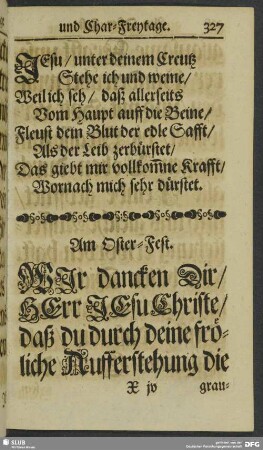 und Char-Freytage. 327
JEsu/ unter deinem Creutz
Stehe ich und weine/
Weil ich seh/ daß allerseits
Vom Haupt auff die Beine/
Fleust dein Blut der edle Safft/
Als der Leib zerbürstet/
Das giebt mir vollkom̃ne Krafft/
Wornach mich sehr dürstet.
Am Oster-Fest.
WIr dancken Dir/
HErr JEsu Christe/
daß du durch deine frö-
liche Aufferstehung die
X jv grau-
SLUB
DFG